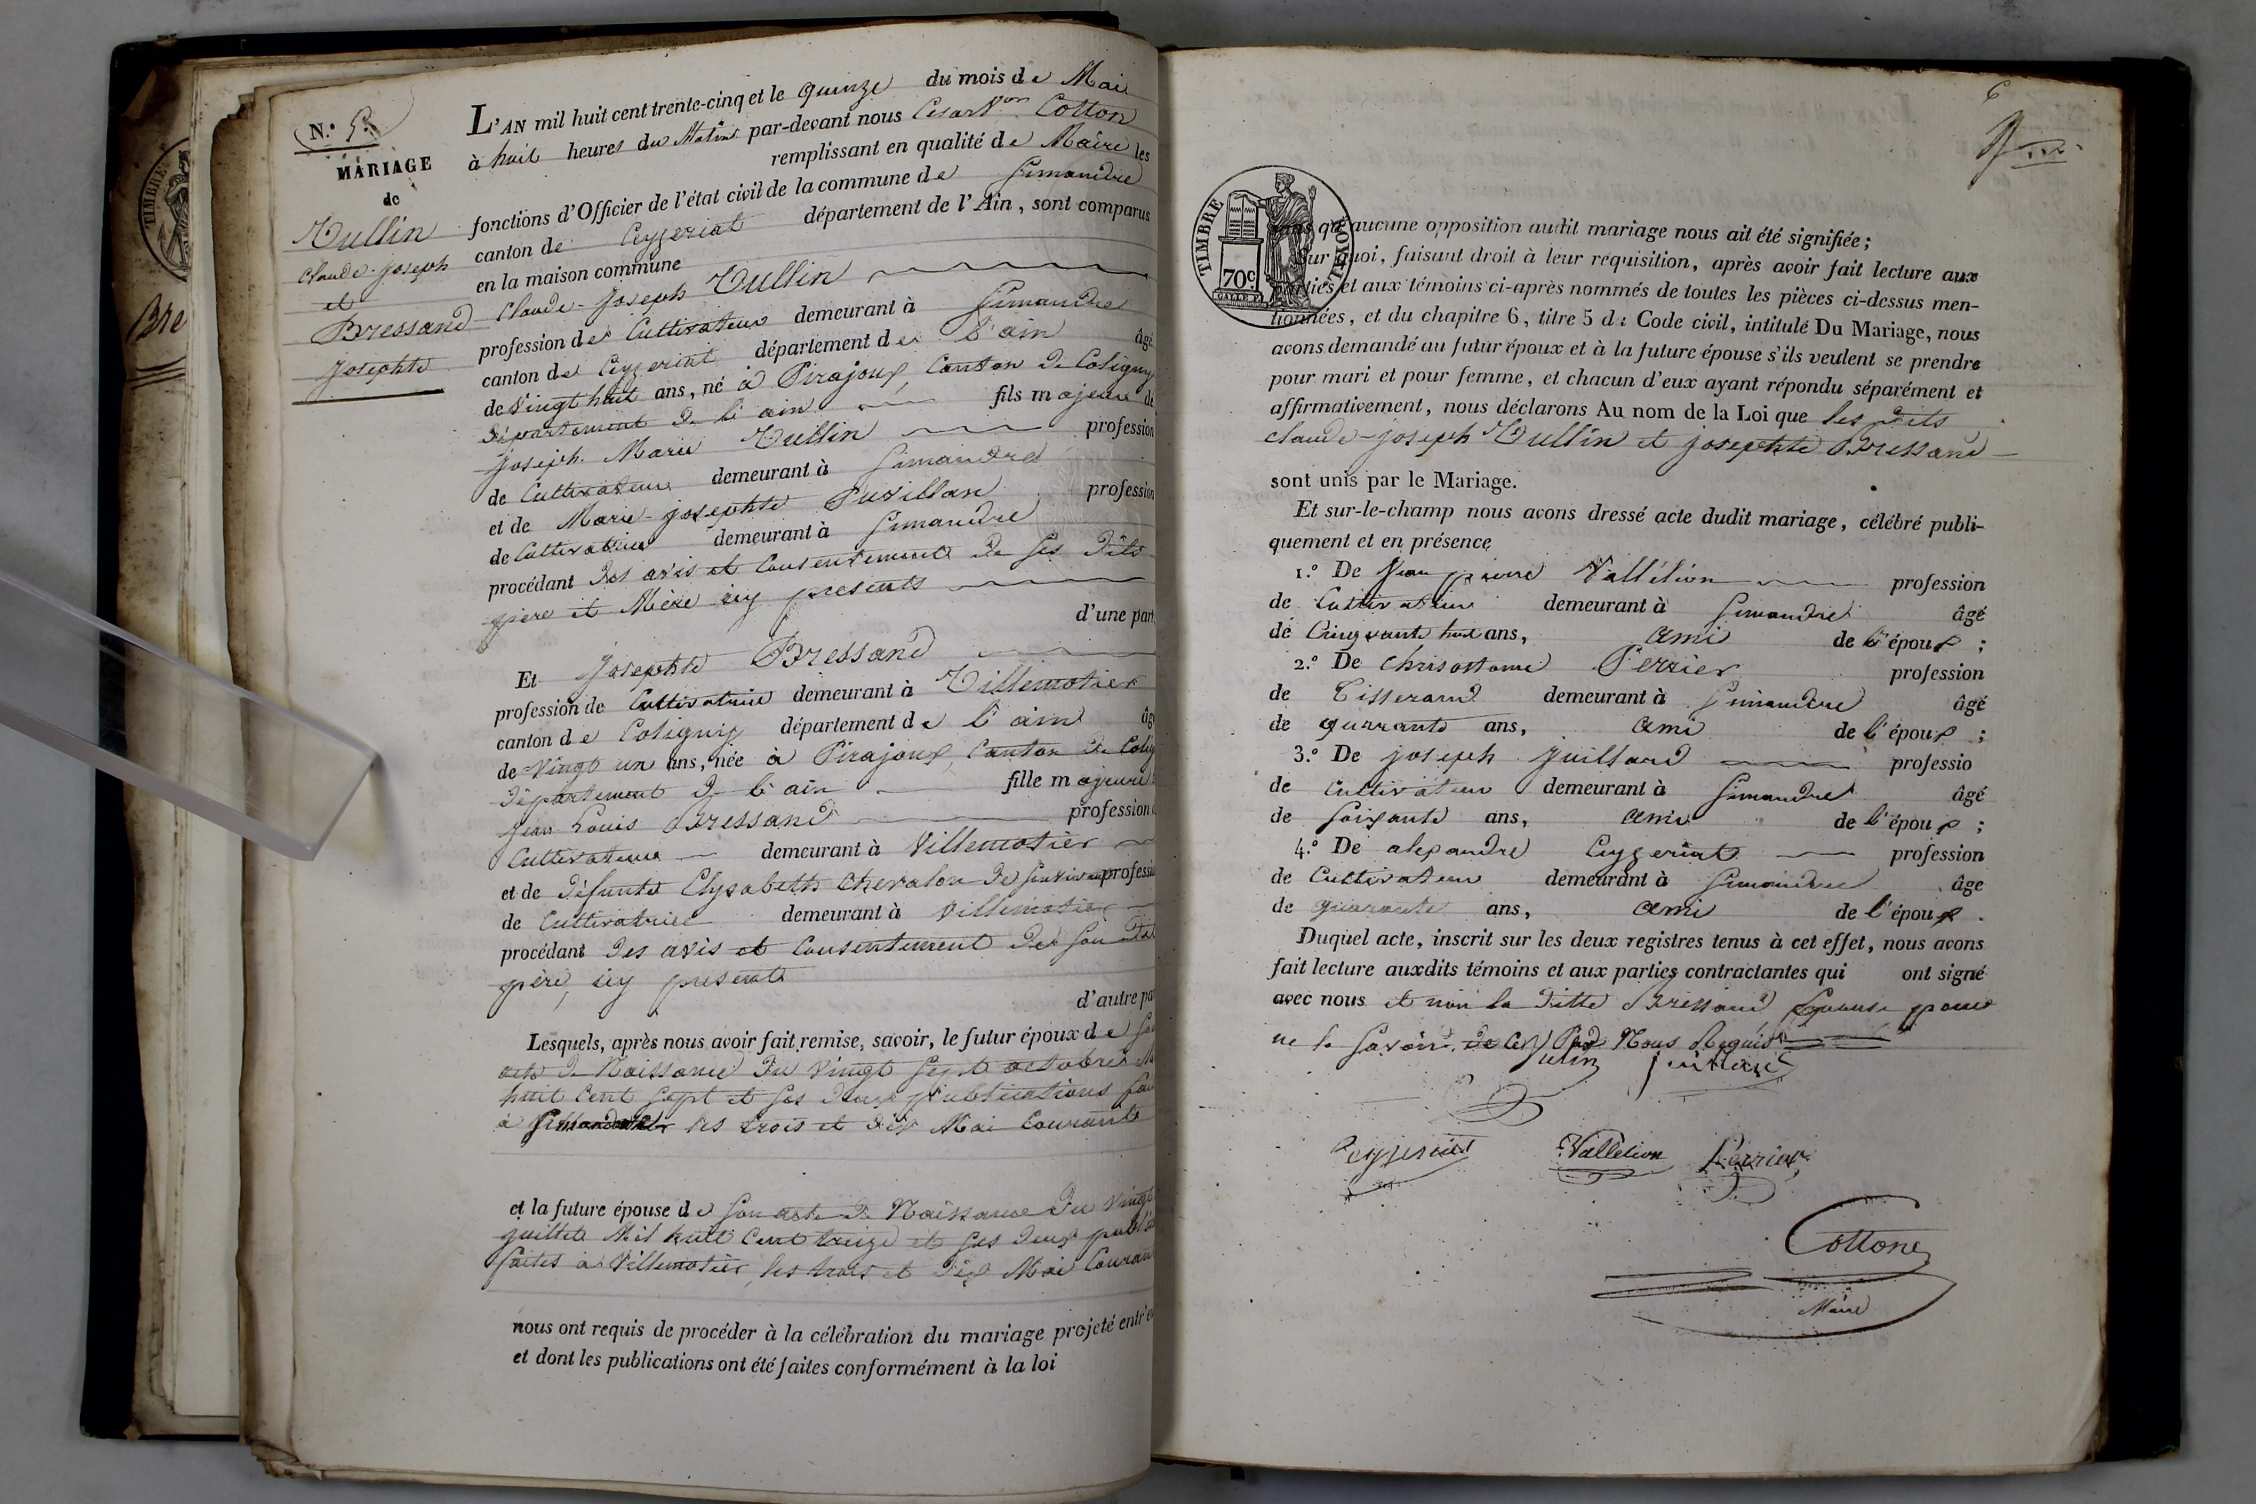 N.° 5.
MARIAGE
de
Tullin
Claude-Joseph
et
Bressand
Josephte
Bre
TIMBRE
L'AN mil huit cent trente-cinq et le quinze du mois de Mai
à huit heures du Matin par-devant nous Cesar Cotton
remplissant en qualité de Maire les
fonctions d'Officier de l'état civil de la commune de Simandre
canton de Ceyzeriat département de l'Ain, sont comparus
en la maison commune
Claude-Joseph Tullin
profession de Cultivateur demeurant à Simandre
canton de Ceyzeriat département de l'ain âgé
de Vingt huit ans, né à Pirajoux, Canton de Coligny
département de l'ain fils majeur de
Joseph Marie Tullin profession
de Cultivateur demeurant à Simandre
et de Marie-josephte Puvillan profession
de Cultivatrice demeurant à Simandre
procédant des avis et Consentement de ses dits
père et Mère icy presents
d'une part
Et Josephte Bressand
profession de Cultivatrice demeurant à Villemotier
canton de Coligny département de l'ain âg
de Vingt un ans, née à Pirajoux, Canton de Colig
département de l'ain fille majeure
Jean Louis Bressand profession
Cultivateur demeurant à Villemotier
et de défunte Elysabeth Chevalon de son vivant profess
de Cultivatrice demeurant à Villemotier
procédant des avis et Consentement de son dit
père, icy present
d'autre pa
Lesquels, après nous avoir fait remise, savoir, le futur époux de son
acte de Naissance du Vingt Sept octobre M
huit Cent Sept et ses deux publications fai
à Simandre les trois et dix Mai Courant
et la future épouse de son acte de Naissance du Vingt
juillet Mil huit Cent treize et ses deux publi
faites à Villemotier, les trois et dix Mai Couran
nous ont requis de procéder à la célébration du mariage projeté entr'e
et dont les publications ont été faites conformément à la loi
6
TIMBRE ROYAL
70c
sans qu'aucune opposition audit mariage nous ait été signifiée;
Sur quoi, faisant droit à leur réquisition, après avoir fait lecture aux
parties et aux témoins ci-après nommés de toutes les pièces ci-dessus men-
tionnées, et du chapitre 6, titre 5 du Code civil, intitulé Du Mariage, nous
avons demandé au futur époux et à la future épouse s'ils veulent se prendre
pour mari et pour femme, et chacun d'eux ayant répondu séparément et
affirmativement, nous déclarons Au nom de la Loi que les dits
claude-joseph Tullin et josephte Bressand
sont unis par le Mariage.
Et sur-le-champ nous avons dressé acte dudit mariage, célébré publi-
quement et en présence
1.° De Jean pierre Vallétion profession
de Cultivateur demeurant à Simandre âgé
de Cinquante huit ans, ami de l'époux;
2.° De Chrisostome Perrier profession
de Tisserand demeurant à Simandre âgé
de quarante ans, ami de l'époux;
3.° De joseph Juillard professio
de Cultivateur demeurant à Simandre âgé
de soixante ans, ami de l'époux;
4.° De alexandre Ceyzeriat profession
de Cultivateur demeurant à Simandre âge
de quarante ans, ami de l'époux.
Duquel acte, inscrit sur les deux registres tenus à cet effet, nous avons
fait lecture auxdits témoins et aux parties contractantes qui ont signé
avec nous et non la ditte Bressand Epouse pour
ne le savoir de ce Nous Requis
Vallétion Perrier
Cottone
Maire